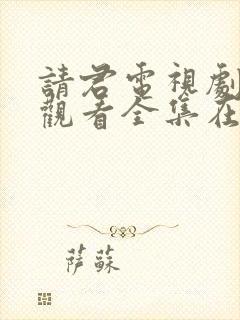 請君電視劇
觀看全集在
萨蘇